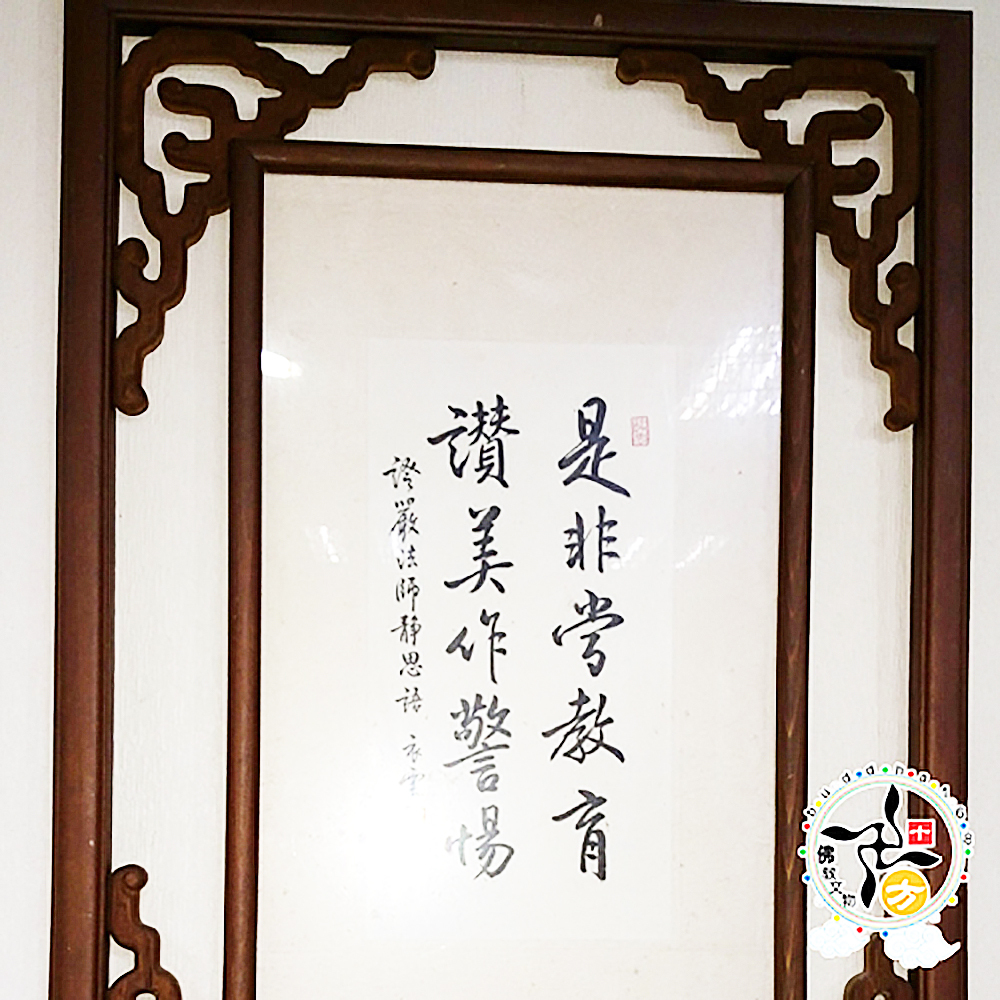 是非當教育
讚美作警惕
證嚴法師靜思語
佛教文物
十方